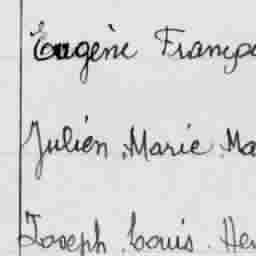 Eugène Franço
Julien, Marie, Ma
Joseph, Louis, Hen